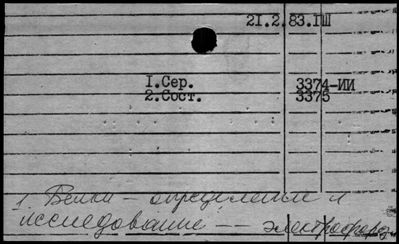 21.2.83.IШ
I.Сер. 3374-ИИ
2.Сост. 3375
1 Белки - определение и
исследование -- электрофорез